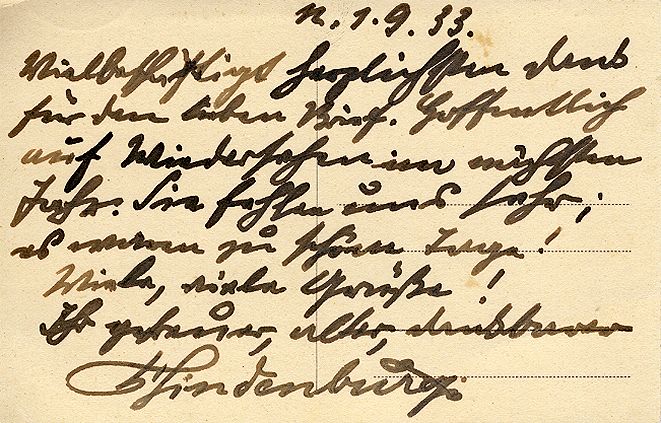 N. 1.9.33.
Vielbeschäftigt herzlichsten Dank
für den lieben Brief. Hoffentlich
auf Wiedersehen im nächsten
Jahr. Sie fehlen uns sehr;
es waren zu schöne Tage!
Viele, viele Grüße!
Ihr getreuer, alter, dankbarer
Hindenburg.